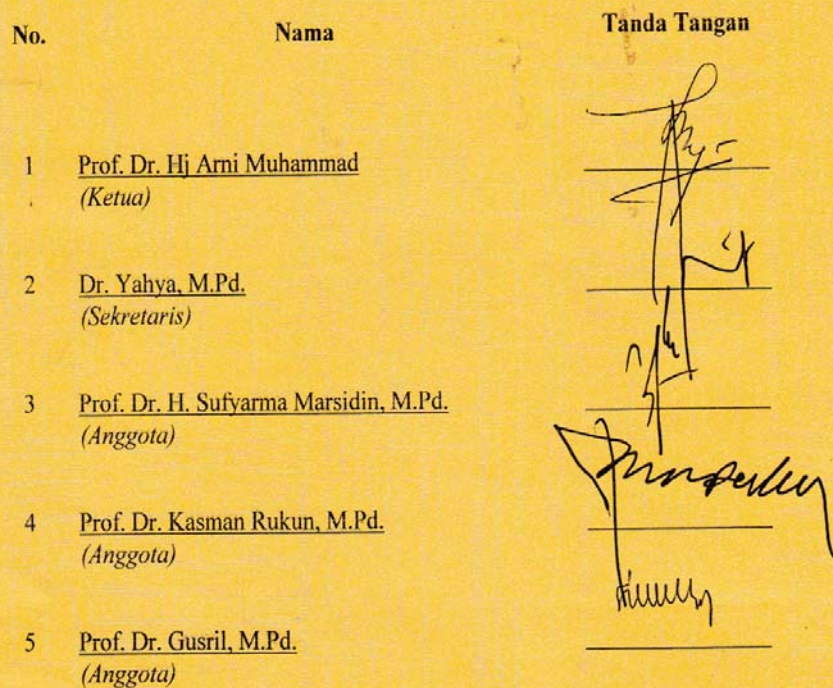 No. Nama Tanda Tangan
1 Prof. Dr. Hj Arni Muhammad
(Ketua)
2 Dr. Yahya, M.Pd.
(Sekretaris)
3 Prof. Dr. H. Sufyarma Marsidin, M.Pd.
(Anggota)
4 Prof. Dr. Kasman Rukun, M.Pd.
(Anggota)
5 Prof. Dr. Gusril, M.Pd.
(Anggota)